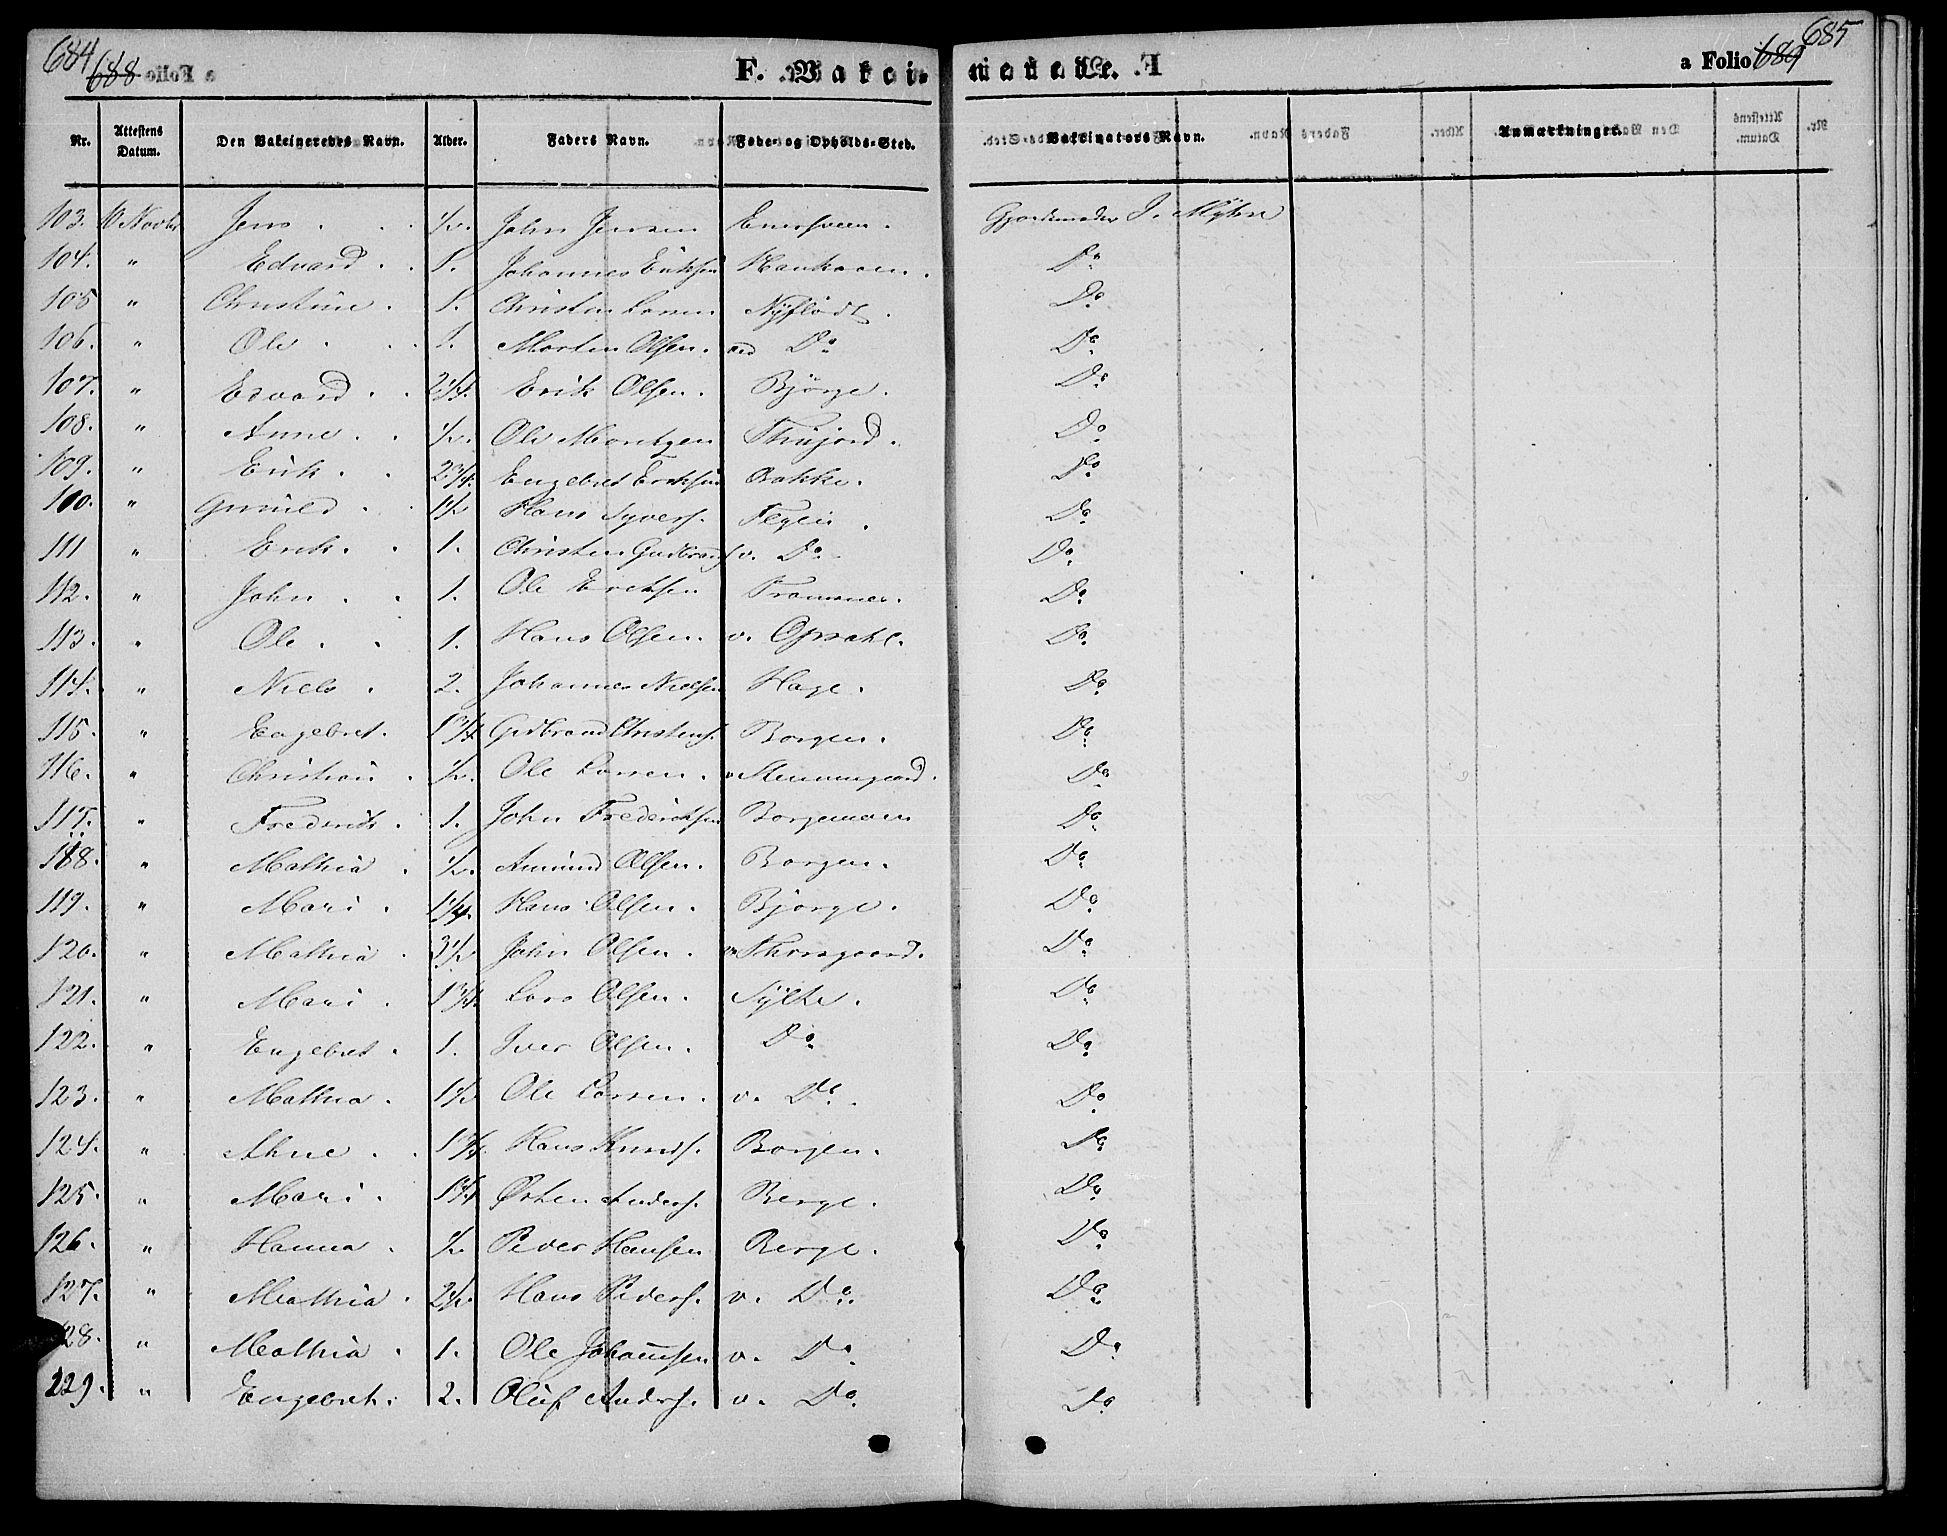 684 688 F. Vakcinerede. a Folio 689 685
Nr. Attestens Datum. Den Vakcineredes Navn. Alder. Faders Navn. Føde- og Opholds-Sted. Vakcinators Navn. Anmærkninger.
103. 10 Novbr Jens . . . 1/2. John Jensen Enersveen. Gjordemoder I. Myhre
104. " Edvard . . 1. Johannes Eriksen . Do
105 " Christine . 1. Christen Larsen Nyflødt . Do
106. " Ole . . . 1. Morten Olsen. Do Do
107. " Edvard . . 2 1/4. Erik Olsen. Bjørge. Do
108. " Anne . . 1/2. Ole Do
109. " Erik . . 2 3/4. Engebret Eriksen Bakke. Do
100. " . . 1 1/2 Hans Syvers. . Do
111 " Erik. . 1. Christen Gudbrands v. Do. Do
112. " John . . 1. Ole Eriksen Do
113. " Ole . . 1. Hans Olsen. v. Opsahl. Do
114. " Niels . 2. Johannes Nielsen Hage. Do
115. " Engebret. 1 3/4 Gudbrand Christens. Borgen. Do
116. " Christian . 1/2. Ole Larsen. v. Do
117. " Frederik . 1. John Frederiksen Borgemoen Do
118. " Mathia . 1/2. Amund Olsen. Borgen. Do
119. " Mari . 1 1/4. Hans Olsen. Bjørge. Do
120. " Mathia . 3 1/2 John Olsen . v. Thorsgaard. Do
121. " Mari . 1 3/4 Lars Olsen. Sylte. Do
122. " Engebret . 1. Iver Olsen. Do Do
123. " Mathia . 1 1/2 Ole Larsen. v. Do . Do
124. " Ahne . . Hans Knuds. Borgen. Do
125. " Mari . Østen Anders. Berge. Do
126. " Hanna . 1/2. Peder Hansen Berge. Do
127. " Mathia . 2 1/2. Hans Peders. v. Do. Do
128. " Mathia . 1. Ole Johannsen v. Do. Do
129. " Engebret. 2. Oluf Anders. v. Do. Do